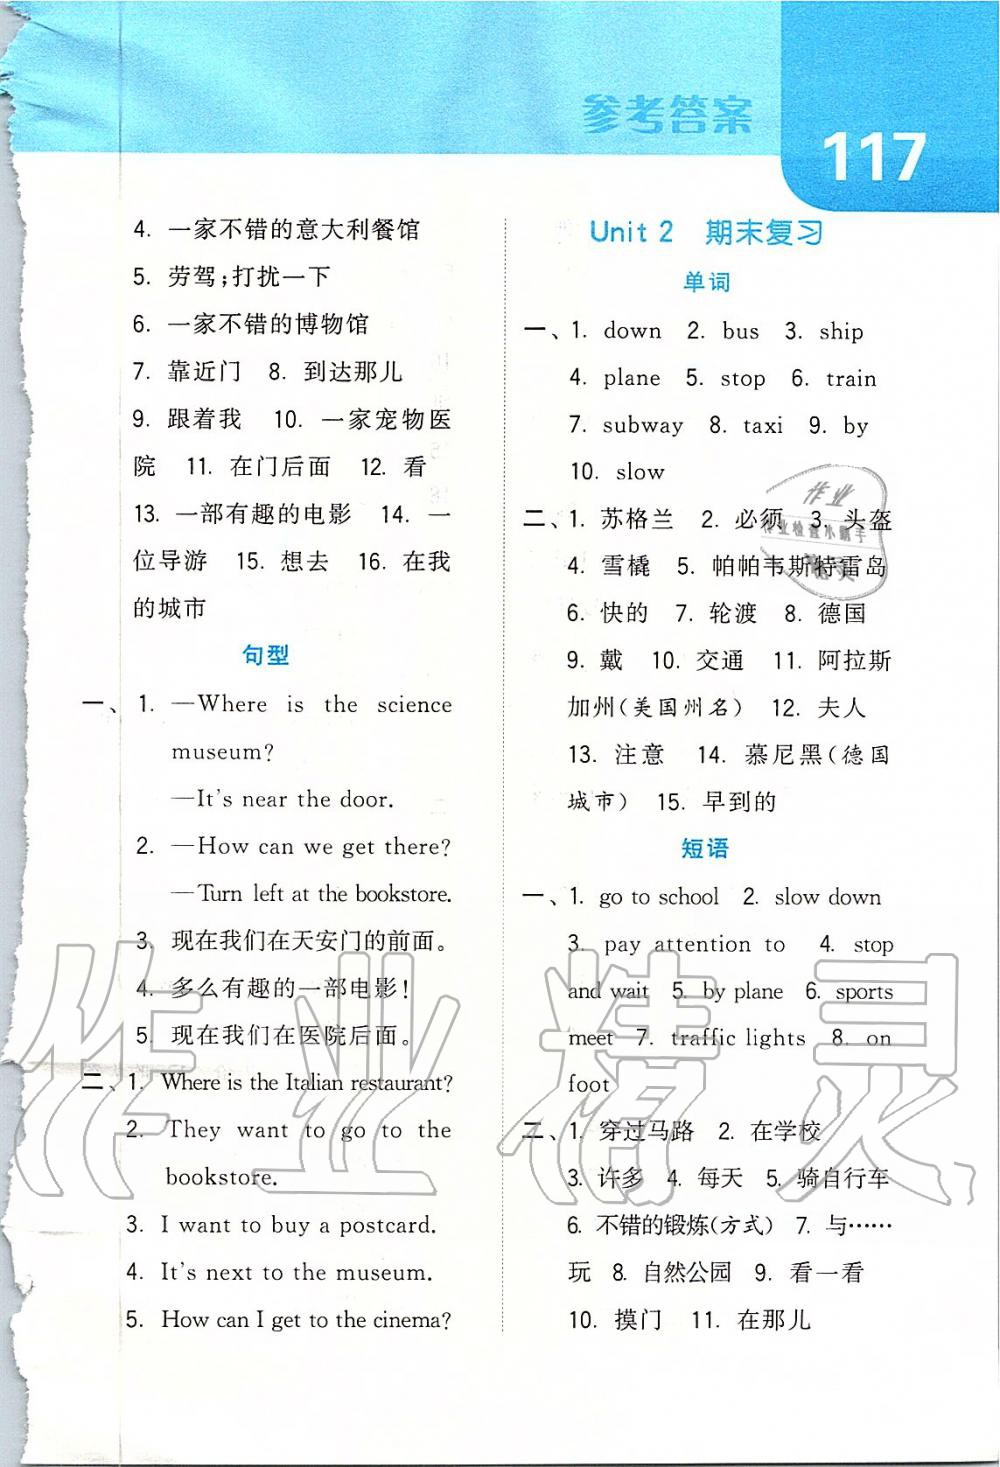 参考答案
117
4. 一家不错的意大利餐馆
5. 劳驾;打扰一下
6. 一家不错的博物馆
7. 靠近门 8. 到达那儿
9. 跟着我 10. 一家宠物医
院 11. 在门后面 12. 看
13. 一部有趣的电影 14. 一
位导游 15. 想去 16. 在我
的城市
句型
一、1. —Where is the science
museum?
—It's near the door.
2. —How can we get there?
—Turn left at the bookstore.
3. 现在我们在天安门的前面。
4. 多么有趣的一部电影!
5. 现在我们在医院后面。
二、1. Where is the Italian restaurant?
2. They want to go to the
bookstore.
3. I want to buy a postcard.
4. It's next to the museum.
5. How can I get to the cinema?
Unit 2 期末复习
单词
一、1. down 2. bus 3. ship
4. plane 5. stop 6. train
7. subway 8. taxi 9. by
10. slow
二、1. 苏格兰 2. 必须 3. 头盔
4. 雪橇 5. 帕帕韦斯特雷岛
6. 快的 7. 轮渡 8. 德国
9. 戴 10. 交通 11. 阿拉斯
加州(美国州名) 12. 夫人
13. 注意 14. 慕尼黑(德国
城市) 15. 早到的
短语
一、1. go to school 2. slow down
3. pay attention to 4. stop
and wait 5. by plane 6. sports
meet 7. traffic lights 8. on
foot
二、1. 穿过马路 2. 在学校
3. 许多 4. 每天 5. 骑自行车
6. 不错的锻炼(方式) 7. 与……
玩 8. 自然公园 9. 看一看
10. 摸门 11. 在那儿
作业
作业检查小助手
作业精灵